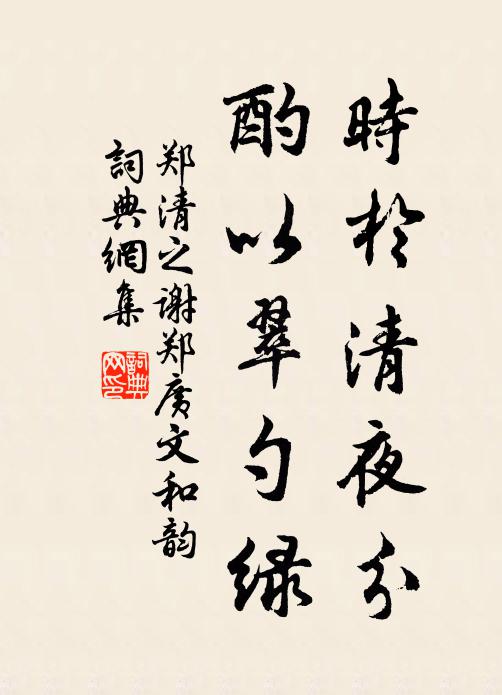 時於清夜分
酌以翠勺绿
郑清之谢郑广文和韵
詞典網集
詞典网印